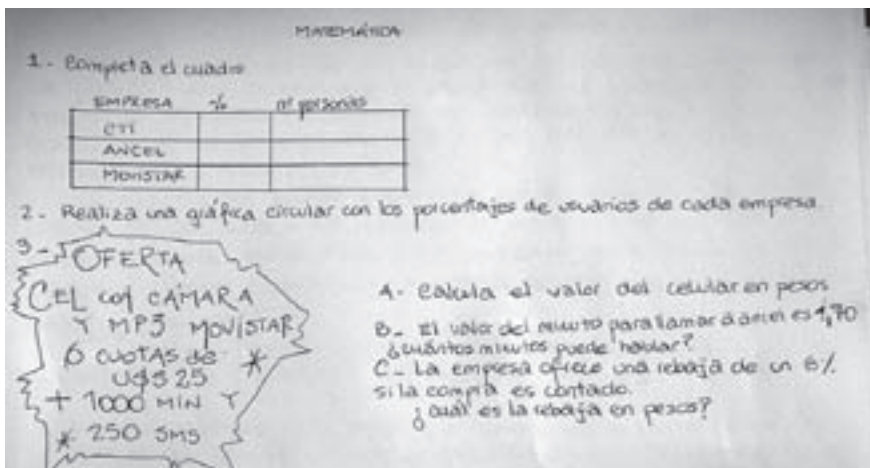 MATEMÁTICA
1- Completa el cuadro
EMPRESA % nº personas
CTI
ANCEL
MOVISTAR
2- Realiza una gráfica circular con los porcentajes de usuarios de cada empresa.
3-
OFERTA
CEL con CAMARA
Y MP3 MOVISTAR
6 CUOTAS de *
U$S 25
+ 1000 MIN Y
* 250 SMS
A- Calcula el valor del celular en pesos
B- El valor del minuto para llamar a ancel es 4,70
¿cuántos minutos puede hablar?
C- La empresa ofrece una rebaja de un 6%
si la compra es contado.
¿cuál es la rebaja en pesos?